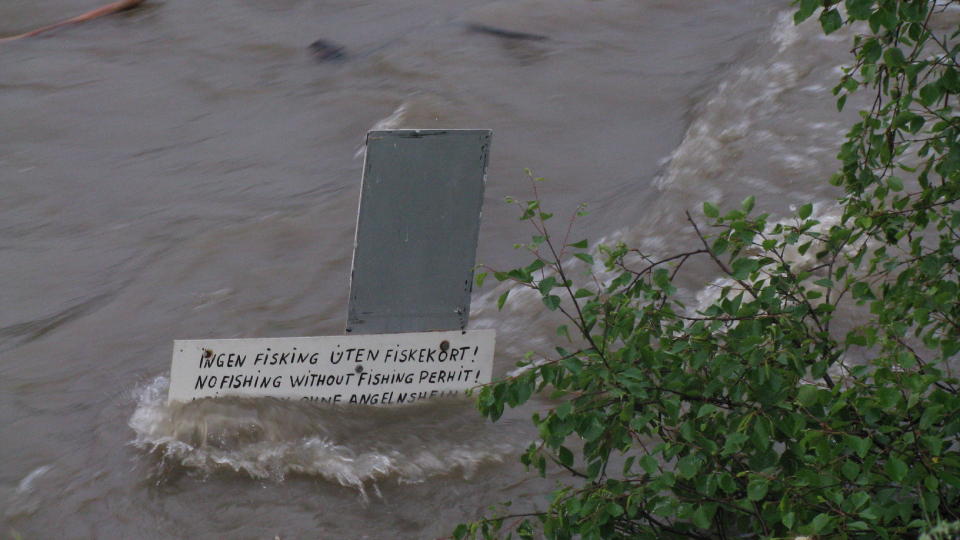 INGEN FISKING UTEN FISKEKORT!
NO FISHING WITHOUT FISHING PERMIT!
OHNE ANGELNSHEIN